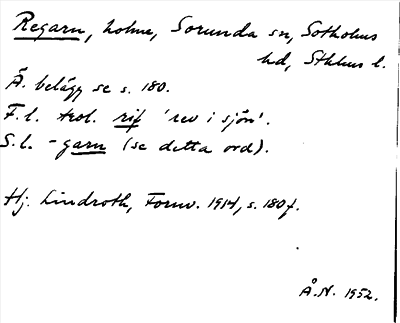 Regarn, holme, Sorunda sn, Sotholms
hd, Sthlms l.
Ä. belägg se s. 180.
F.l. trol. rif 'rev i sjön'.
S.l. -garn (se detta ord).
Hj. Lindroth, Fornv. 1914, s. 180 f.
Å.N. 1952.